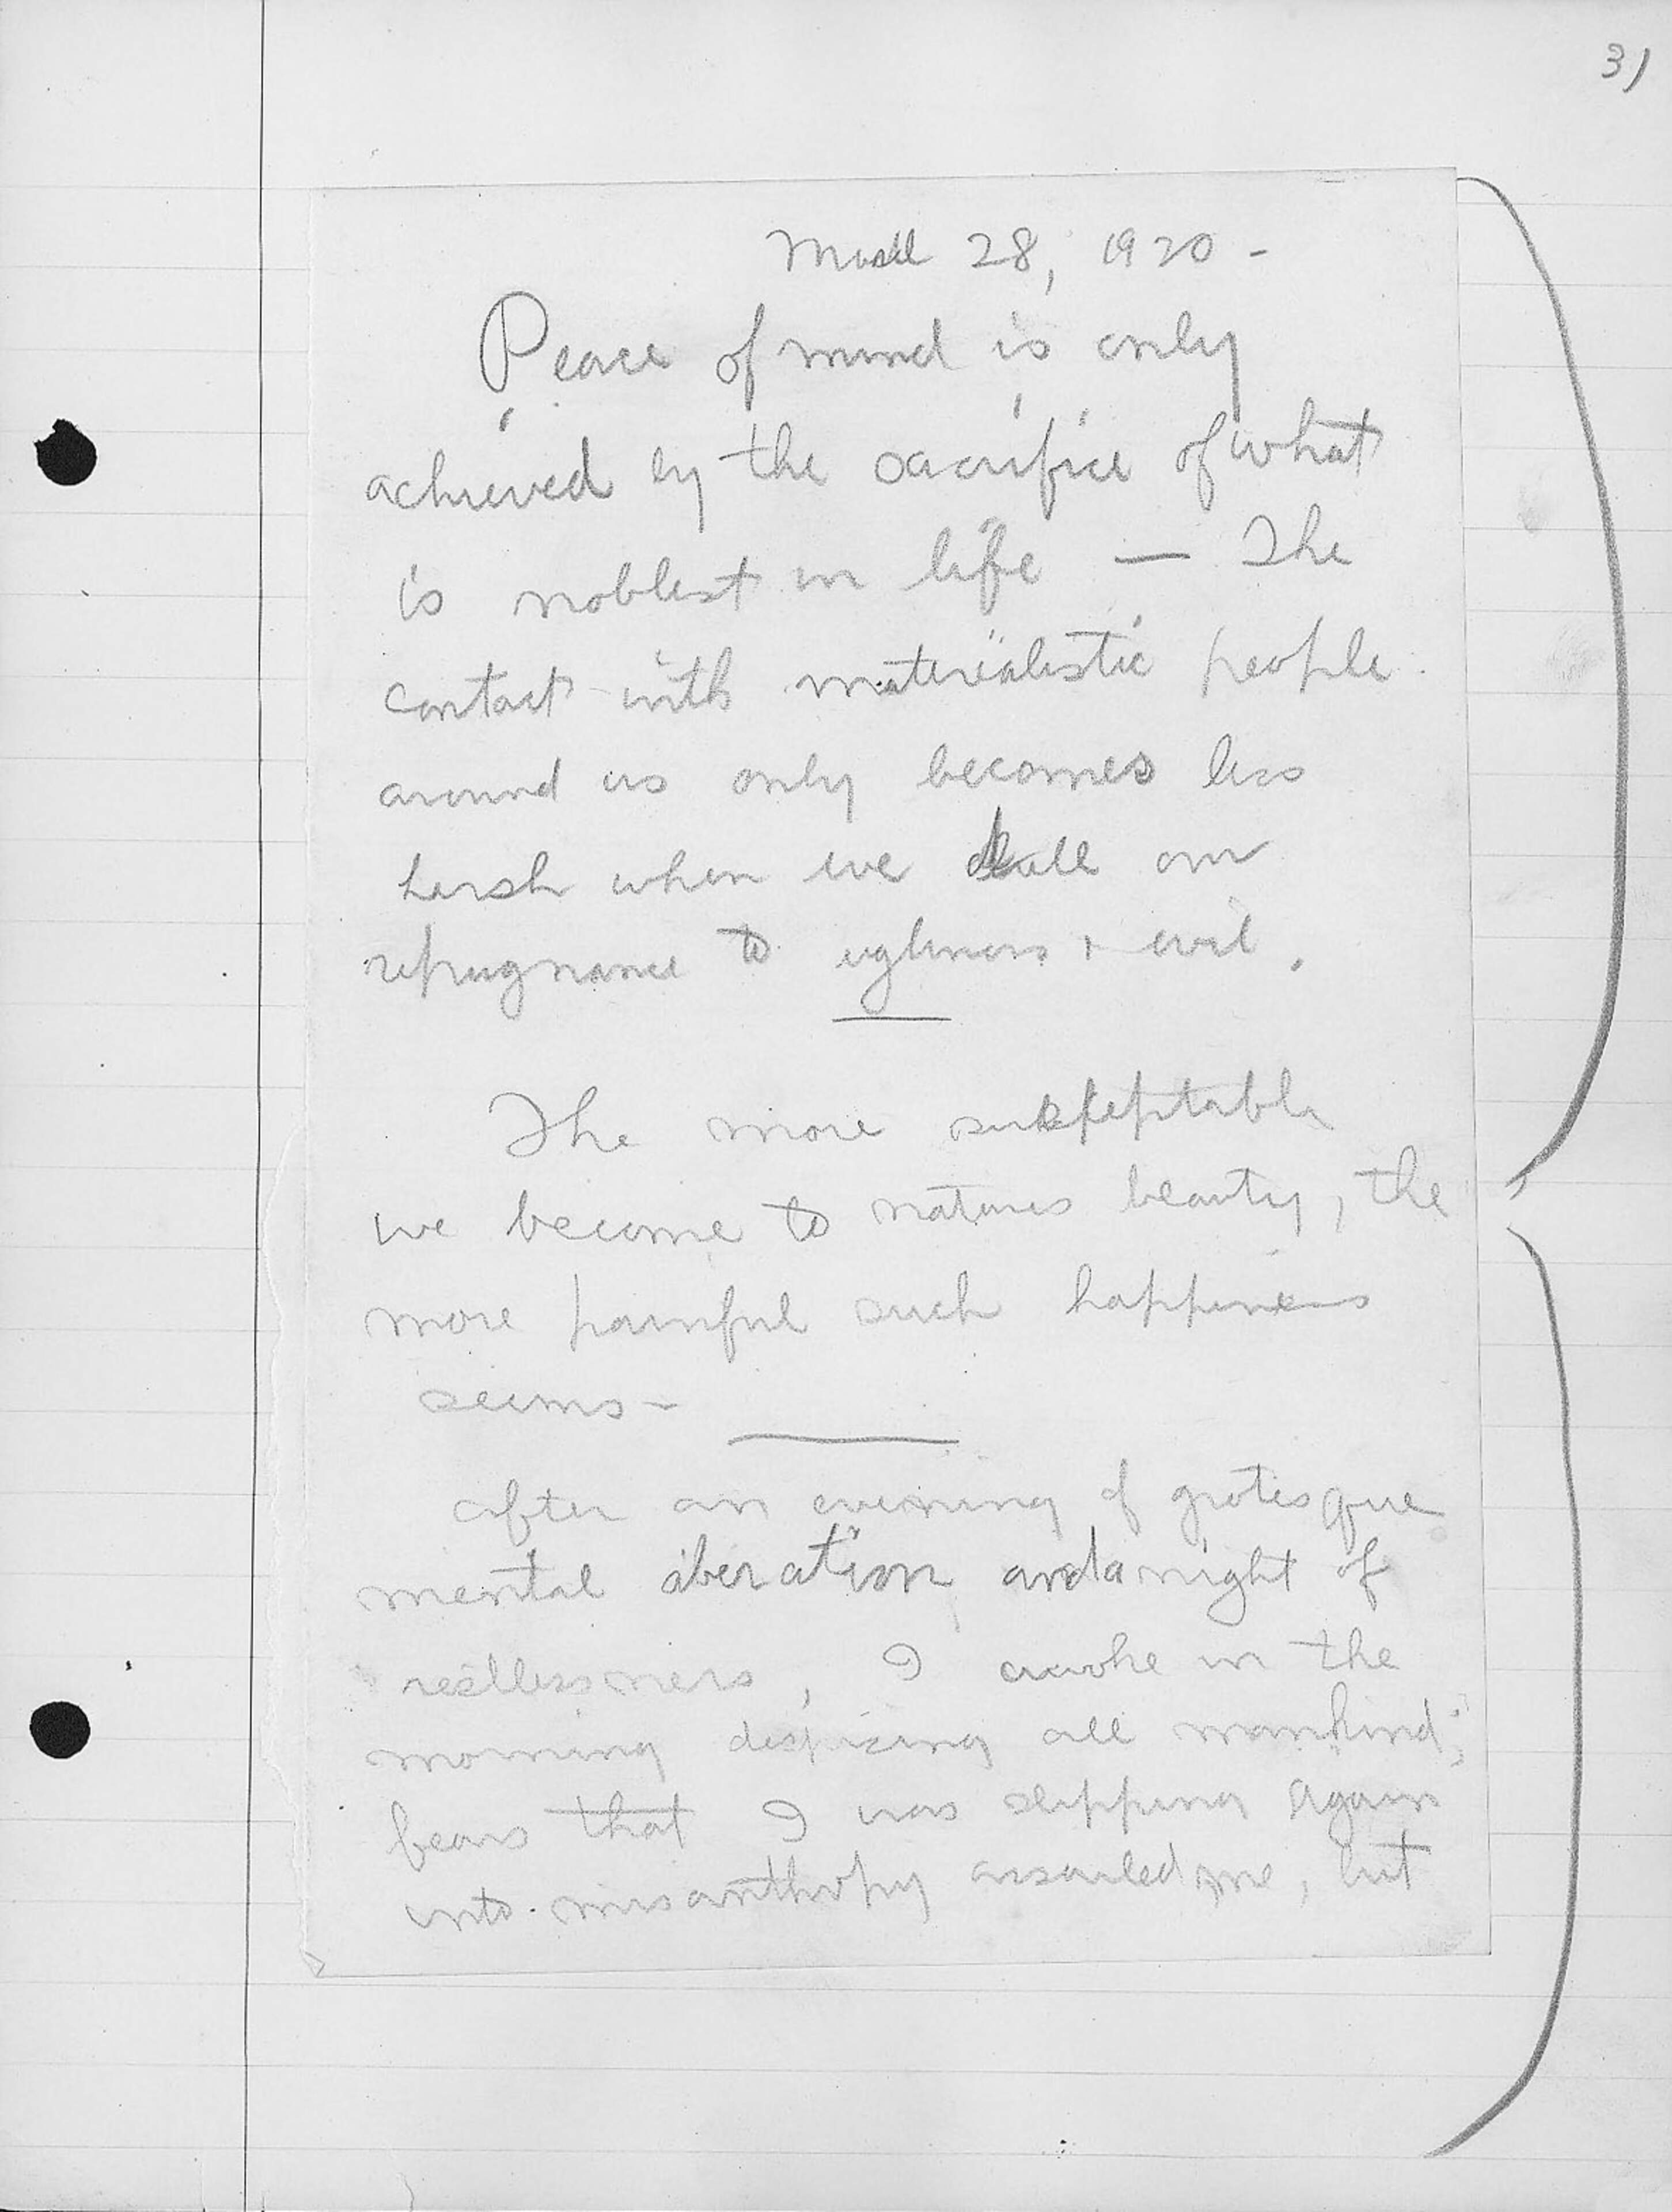 31
March 28, 1920 -
Peace of mind is only
achieved by the sacrifice of what
is noblest in life — The
contact with materialistic people
around us only becomes less
harsh when we dull our
repugnance to ugliness + evil.
The more suskeptable
we become to natures beauty, the
more painful such happiness
seems -
After an evening of grotesque
mental aberation and a night of
restlessness, I awoke in the
morning despising all mankind;
fears that I was slipping again
into misanthropy assailed me, but